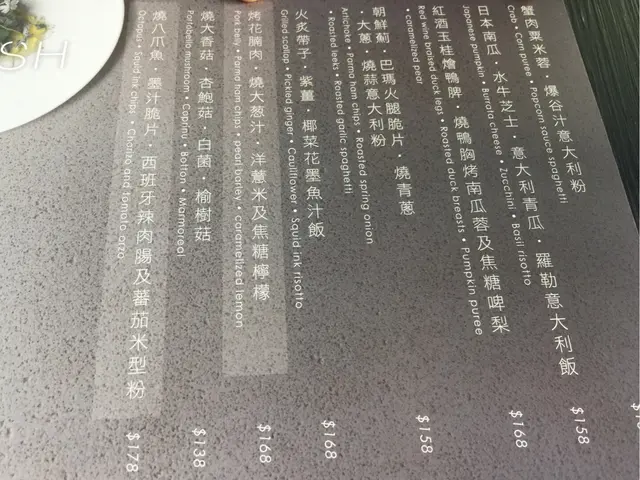 SH
蟹肉粟米蓉．爆谷汁意大利粉
Crab • Corn puree • Popcorn sauce spaghetti
日本南瓜．水牛芝士．意大利青瓜．羅勒意大利飯 $158
Japanese pumpkin • Burrata cheese • Zucchini • Basil risotto
紅酒玉桂燴鴨脾．燒鴨胸烤南瓜蓉及焦糖啤梨 $168
Red wine braised duck legs • Roasted duck breasts • Pumpkin puree
• caramelized pear
朝鮮薊．巴瑪火腿脆片．燒青蔥
．大蔥．燒蒜意大利粉 $158
Artichoke • Parma ham chips • Roasted spring onion
• Roasted leeks • Roasted garlic spaghetti
火炙帶子．紫薑．椰菜花墨魚汁飯 $168
Grilled scallop • Pickled ginger • Cauliflower • Squid ink risotto
烤花腩肉．燒大葱汁．洋薏米及焦糖檸檬 $168
Pork belly • Parma ham chips • pearl barley • caramelized lemon
燒大香菇．杏鮑菇．白菌．榆樹菇 $138
Portobello mushroom • Caprinu • Botton • Marmoreal
燒八爪魚．墨汁脆片．西班牙辣肉腸及蕃茄米型粉 $178
Octopus • Squid ink chips • Chorizo and tomato orzo